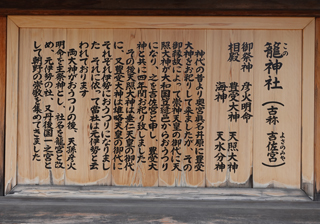 この
籠神社(古称 吉佐宮)
よさのみや
御祭神 彦火明命 天照大神
相殿 豊受大神
海神 天水分神
神代の昔より奥宮眞名井原に豊受
大神をお祀りして来ましたが、その
御縁故によって崇神天皇の御代に天
照大神が大和国笠縫邑からおうつり
になり、之を吉佐宮と申し、豊受大
神と共に四年間お祀り致しました。
その後天照大神は垂仁天皇の御代
に、又豊受大神は雄略天皇の御代に
それぞれ伊勢におうつりになりまし
た。それに依って當社は元伊勢と云
われております。
両大神がおうつりの後、天孫彦火
明命を主祭神とし、社名を籠宮と改
め、元伊勢の社、又丹後国一之宮と
して朝野の崇敬を集めてきました